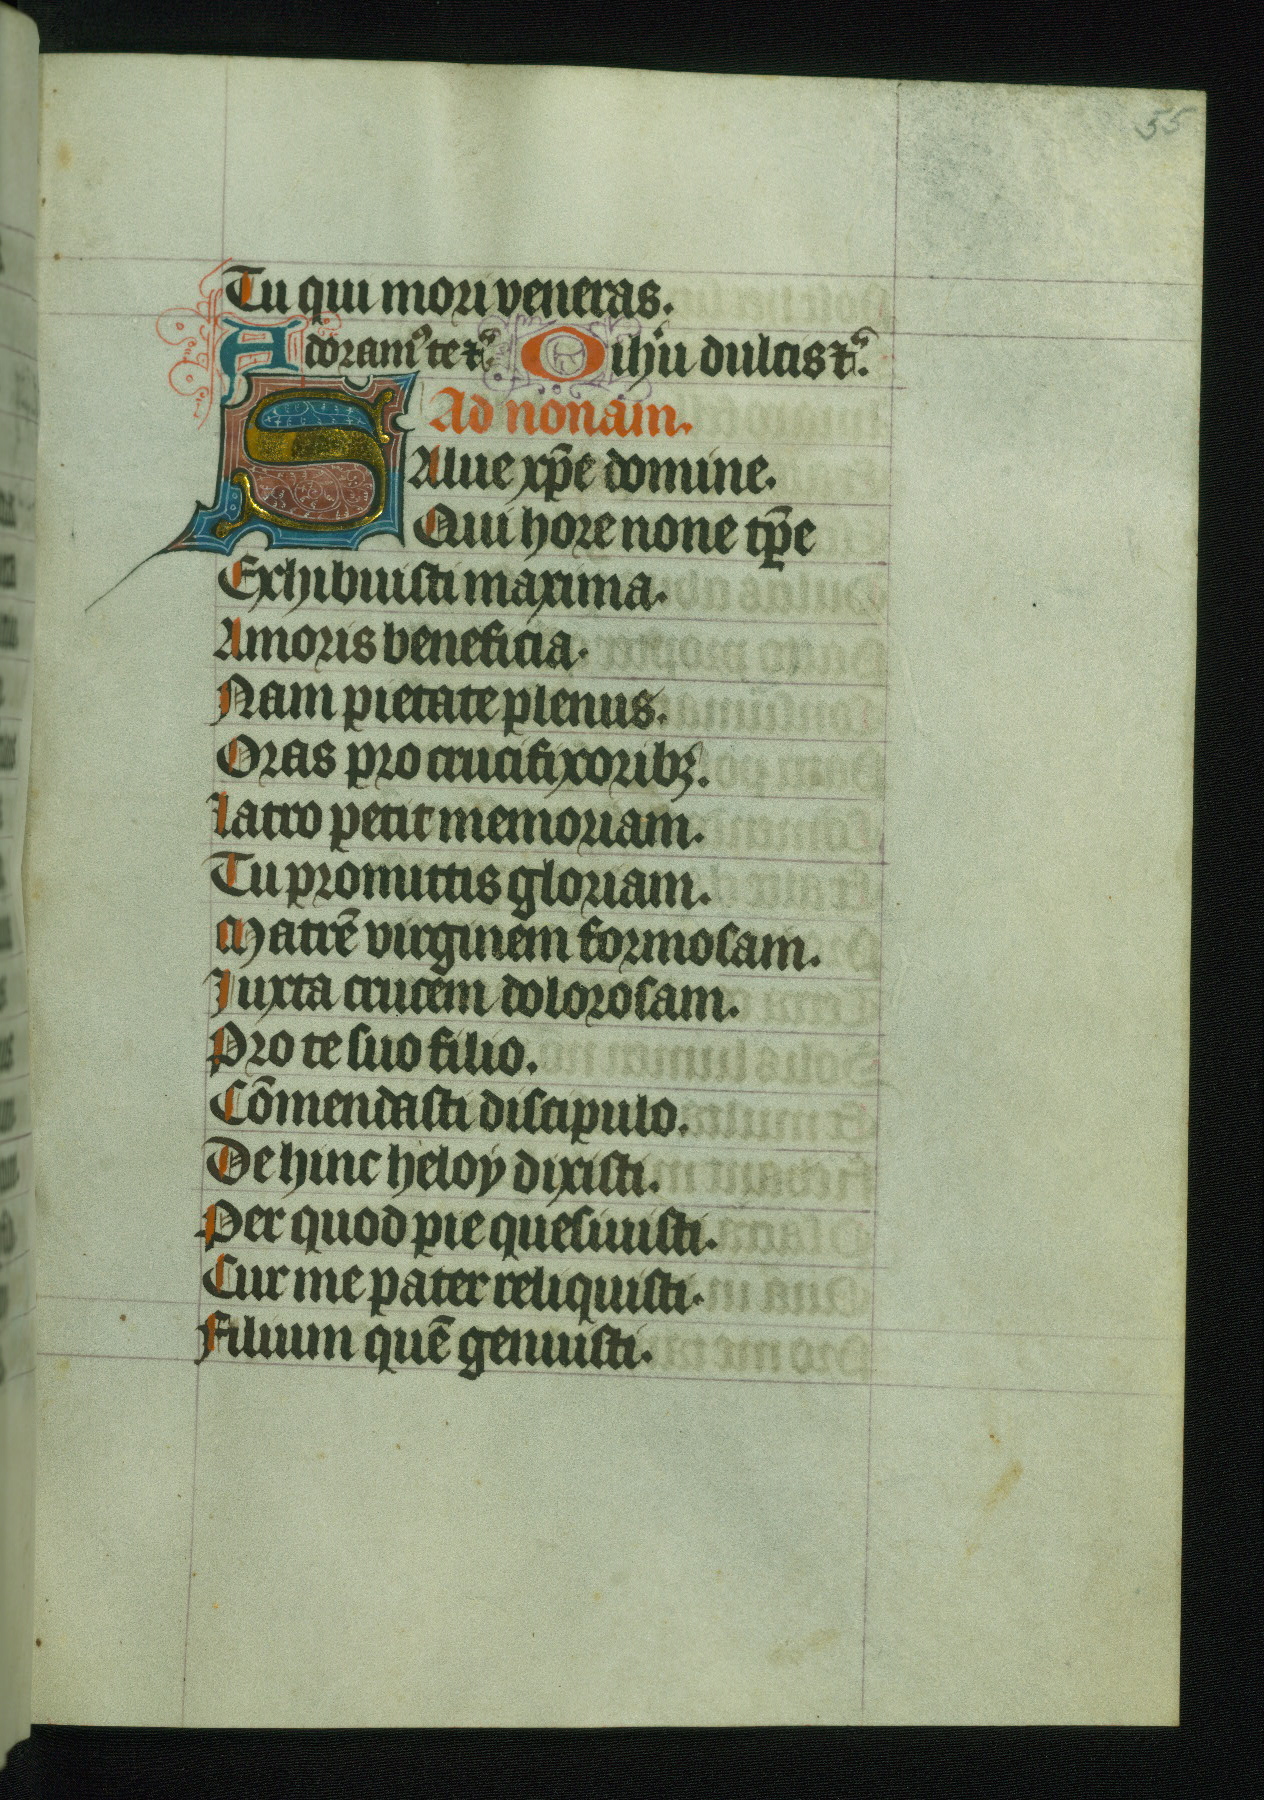 55
Tu qui mori veneras.
Adoram᷒ te ⁊c̃. O ih̾u dulcis ⁊c̃.
Ad nonam.
Salue xp̄e domine.
Qui hore none tp̄e
Exhibuisti maxima.
Amoris beneficia.
Nam pietate plenus.
Oras pro crucifixoribꝫ.
Latro petit memoriam.
Tu promittis gloriam.
Matrē virginem formosam.
Juxta crucem dolorosam.
Pro te suo filio.
Cōmendasti discipulo.
De hinc heloy dixisti.
Per quod pie quesiuisti.
Cur me pater reliquisti.
Filium quē genuisti.